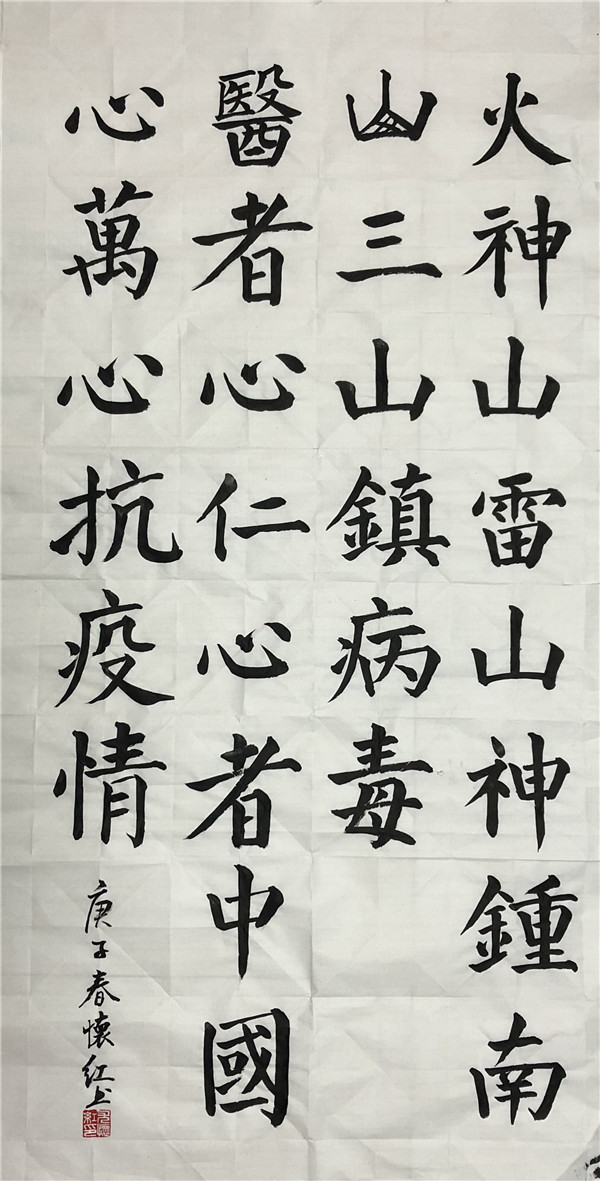 火神山雷山神鍾南
山三山鎮病毒
醫者心仁心者中國
心萬心抗疫情
庚子春懷紅书